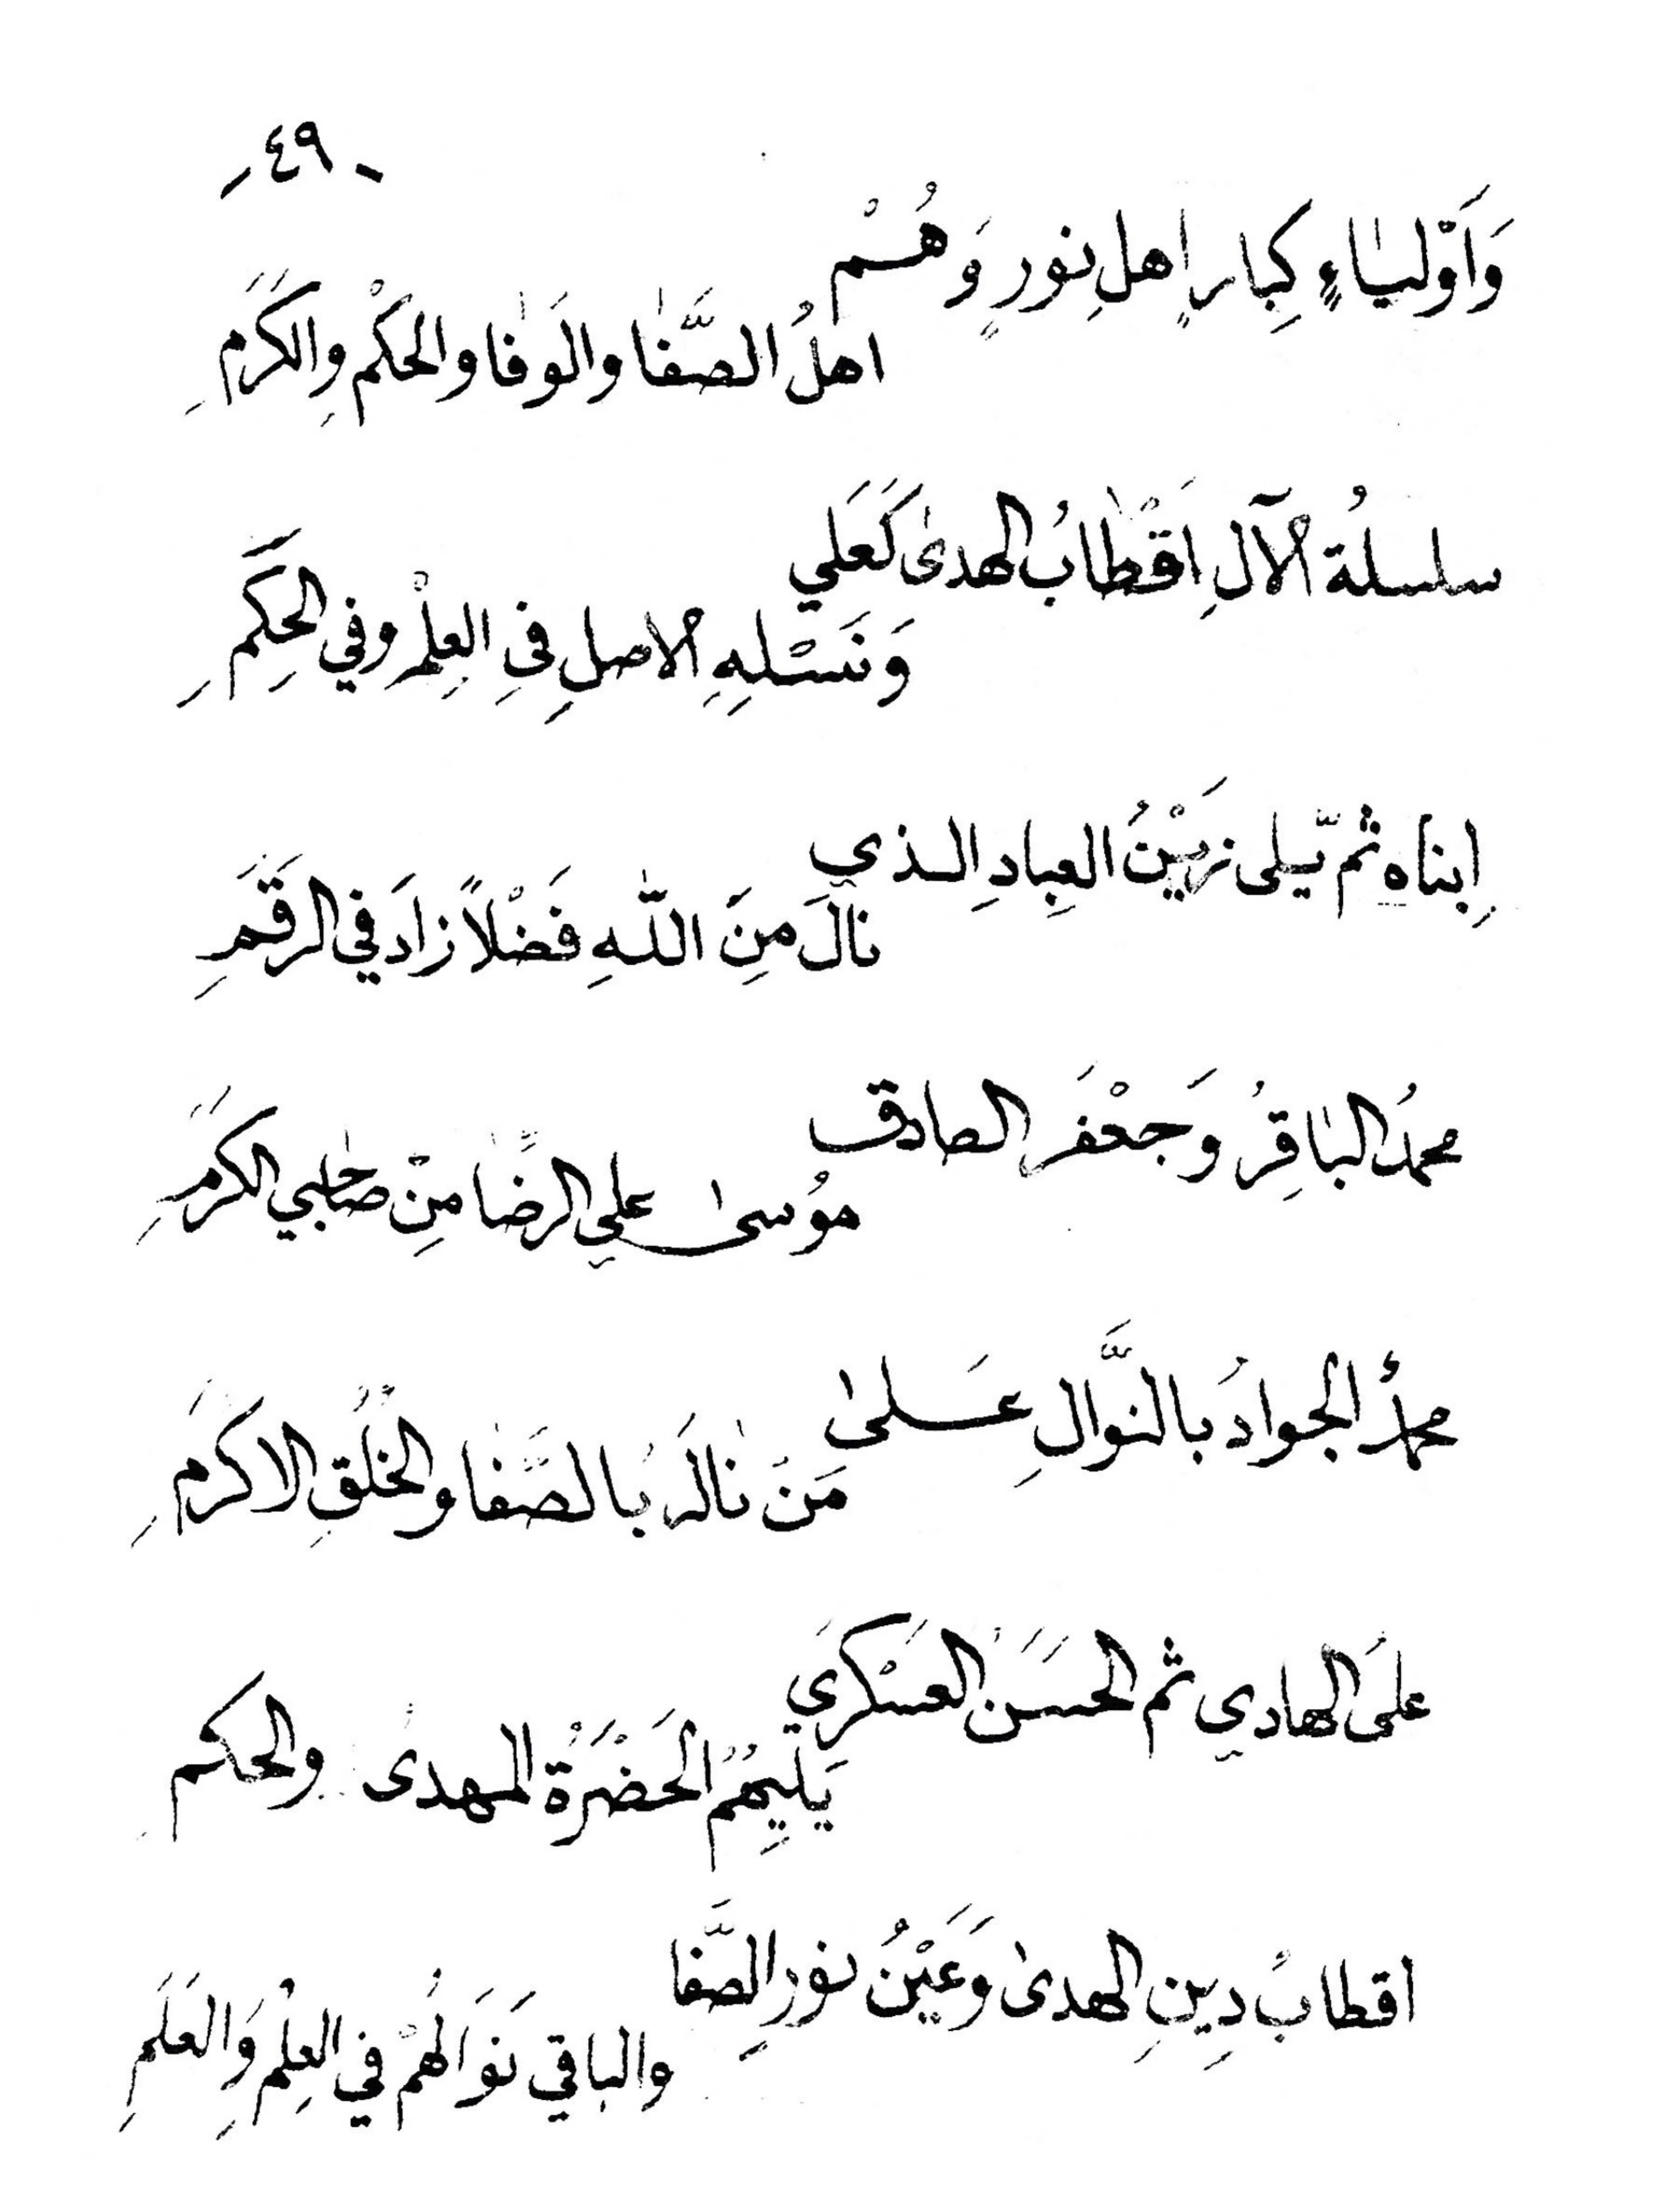 - ٤٩ -
وَاَوْلِيَاءٍ كِبَارٍ اهلِ نورٍ وَهُمْ
اهلُ الصَّفَا والوَفَا والحكْمِ والكَرَمِ
سلسلةُ الآلِ اَقْطَابُ الهدىٰ كَعَلي
وَنَسْلِهِ الاصلِ فِى العِلْمِ وفي الحِكَمِ
اِبناه ثم يّلى زيْنُ العِبادِ الذي
نالَ مِنَ اللّٰهِ فَضْلاً زادَ في الرقَمِ
محمدُ البَاقِرُ وَجَعْفَر الصادق
مُوسىٰ علي الرِضَا مِنْ صَاحبي الكرَمِ
محمدُ الجوادُ بالنَّوالِ عَلىٰ
مَنْ نَالَه بالصَّفَا والخُلُقِ الاكرَمِ
علىَ الهادي ثم الحَسَن العَسْكَري
يَليِهمُ الحَضْرَةُ المهدى والحكم
اقطابُ دِينِ الهدىٰ وَعَيْنُ نورِ الصَّفَا
والباقي نَوَالُهمْ في العِلْمِ وَالعَلَمِ